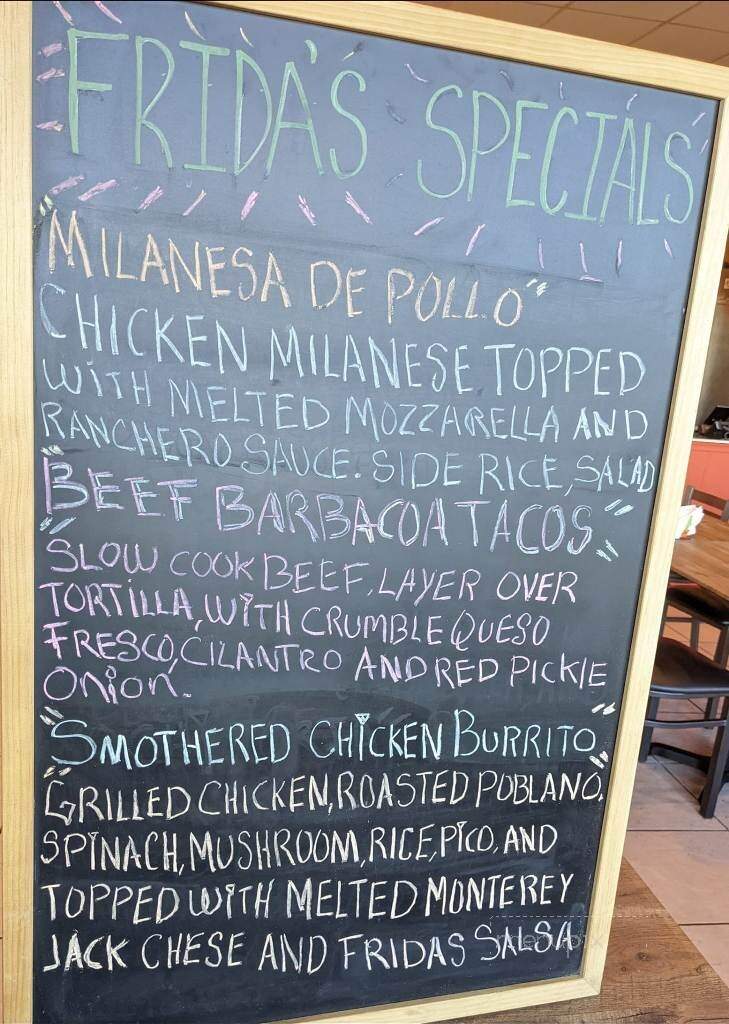 FRIDA'S SPECIALS
MILANESA DE POLLO"
CHICKEN MILANESE TOPPED
WITH MELTED MOZZARELLA AND
RANCHERO SAUCE. SIDE RICE, SALAD
"BEEF BARBACOA TACOS"
SLOW COOK BEEF, LAYER OVER
TORTILLA, WITH CRUMBLE QUESO
FRESCO, CILANTRO AND RED PICKLE
Onion.
"SMOTHERED CHICKEN BURRITO"
GRILLED CHICKEN, ROASTED POBLANO,
SPINACH, MUSHROOM, RICE, PICO, AND
TOPPED WITH MELTED MONTEREY
JACK CHESE AND FRIDAS SALSA